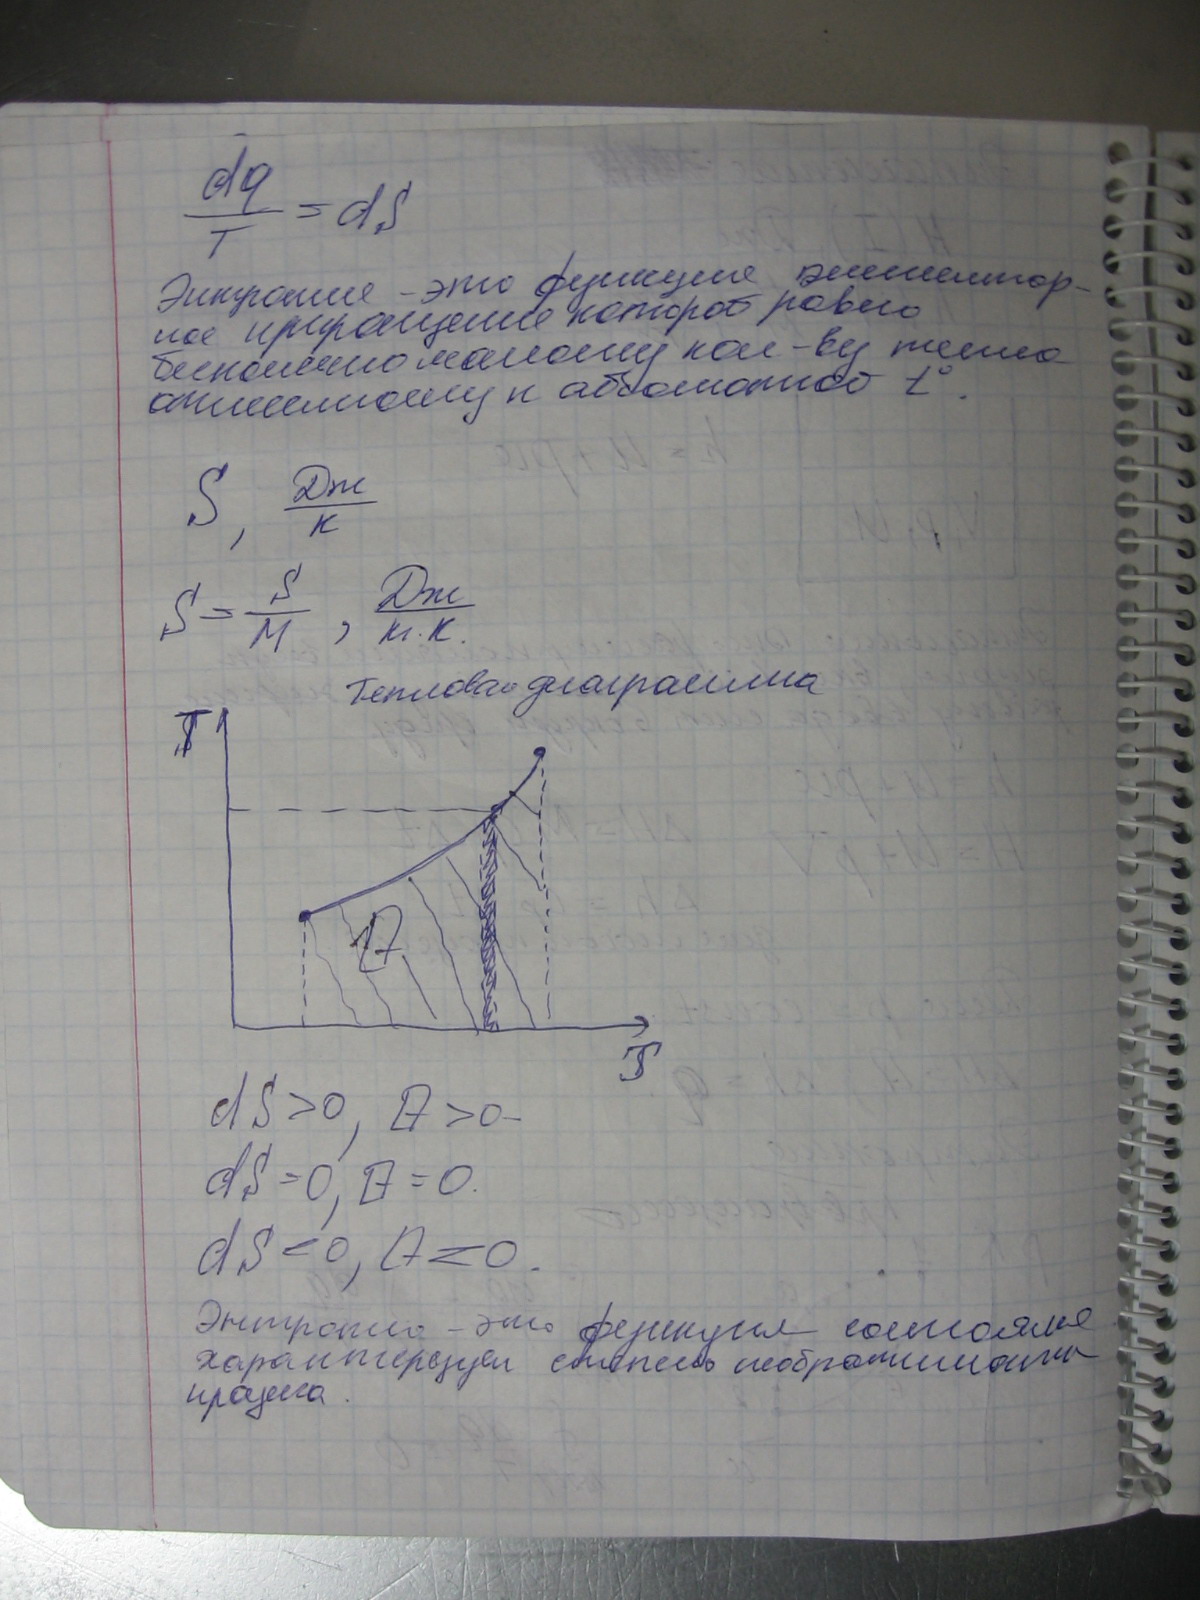 dq
T = dS
Энтропия - это функция элементар-
ное приращение которой равно
бесконечно малому кол-ву тепла
отнесенному к абсолютной t°.
S, Дж
К
S = S , Дж
М кг.К.
Тепловая диаграмма
T
Q
S
dS>0, Q>0
dS=0, Q=0.
dS<0, Q<0.
Энтропия - это функция состояния
характеризует степень необратимости
процесса.